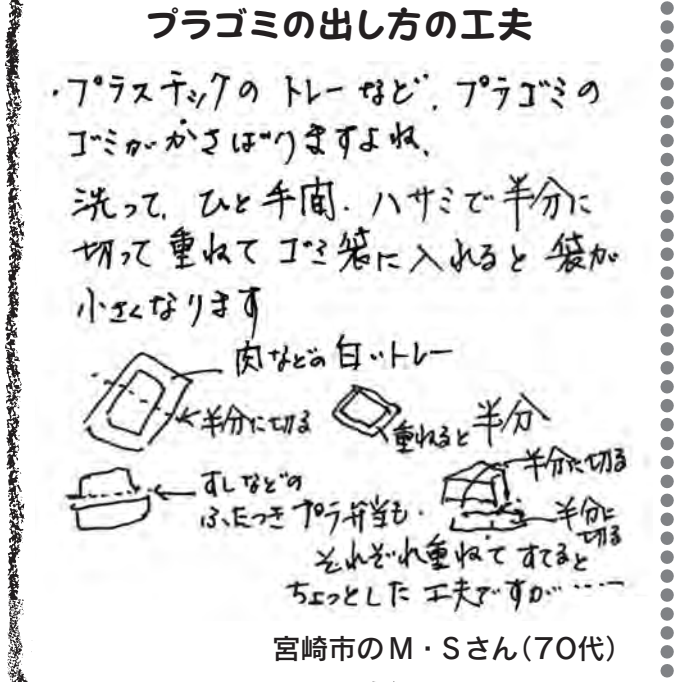 プラゴミの出し方の工夫
・プラスチックのトレーなど、プラゴミの
ゴミがかさばりますよね、
洗って、ひと手間、ハサミで半分に
切って重ねてゴミ袋に入れると袋が
小さくなります
肉などの白いトレー
半分に切る
重ねると半分
すしなどの
ふたつきプラ弁当も、
半分に切る
半分に
切る
それぞれ重ねてすてると
ちょっとした工夫ですが……
宮崎市のM・Sさん(70代)